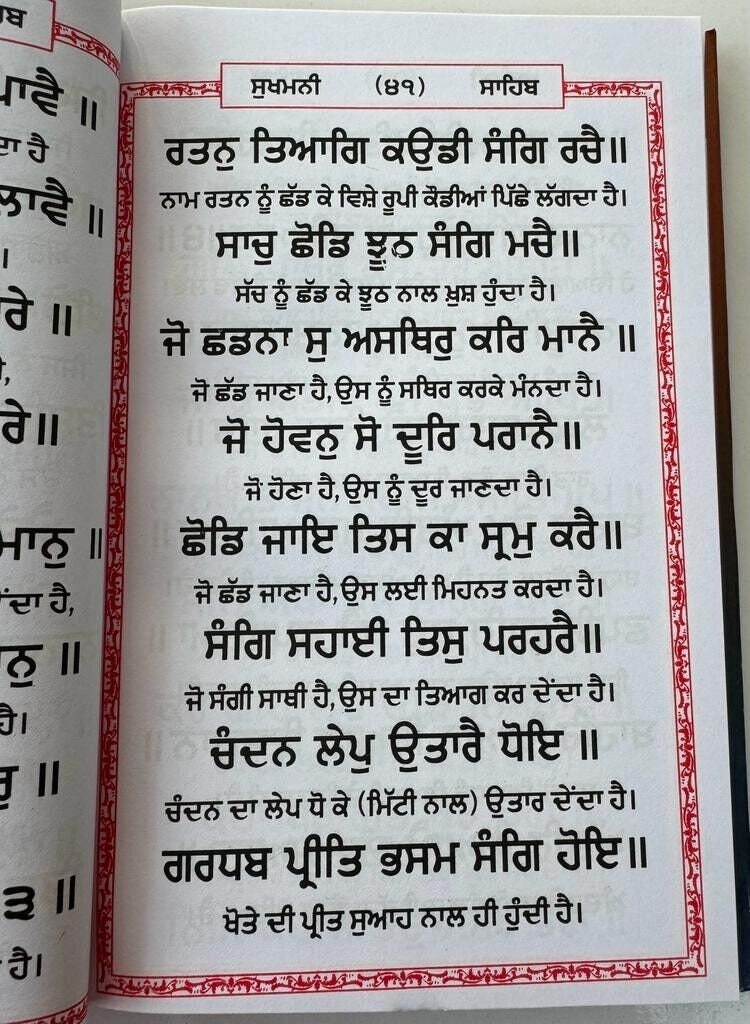 ਬ
ਪਾਵੈ ॥
ਦਾ ਹੈ
ਲਾਵੈ ॥
।
ਰੇ ॥
ਰੇ॥
ਮਾਨੁ ॥
ਦਾ ਹੈ,
ਨੁ ॥
ਹੈ।
ਰੁ ॥
੩ ॥
ਹੈ।
ਸੁਖਮਨੀ (੪੧) ਸਾਹਿਬ
ਰਤਨੁ ਤਿਆਗਿ ਕਉਡੀ ਸੰਗਿ ਰਚੈ॥
ਨਾਮ ਰਤਨ ਨੂੰ ਛੱਡ ਕੇ ਵਿਸ਼ੇ ਰੂਪੀ ਕੌਡੀਆਂ ਪਿੱਛੇ ਲੱਗਦਾ ਹੈ।
ਸਾਚੁ ਛੋਡਿ ਝੂਠ ਸੰਗਿ ਮਚੈ॥
ਸੱਚ ਨੂੰ ਛੱਡ ਕੇ ਝੂਠ ਨਾਲ ਖ਼ੁਸ਼ ਹੁੰਦਾ ਹੈ।
ਜੋ ਛਡਨਾ ਸੁ ਅਸਥਿਰੁ ਕਰਿ ਮਾਨੈ ॥
ਜੋ ਛੱਡ ਜਾਣਾ ਹੈ,ਉਸ ਨੂੰ ਸਥਿਰ ਕਰਕੇ ਮੰਨਦਾ ਹੈ।
ਜੋ ਹੋਵਨੁ ਸੋ ਦੂਰਿ ਪਰਾਨੈ॥
ਜੋ ਹੋਣਾ ਹੈ,ਉਸ ਨੂੰ ਦੂਰ ਜਾਣਦਾ ਹੈ।
ਛੋਡਿ ਜਾਇ ਤਿਸ ਕਾ ਸ੍ਰਮੁ ਕਰੈ॥
ਜੋ ਛੱਡ ਜਾਣਾ ਹੈ,ਉਸ ਲਈ ਮਿਹਨਤ ਕਰਦਾ ਹੈ।
ਸੰਗਿ ਸਹਾਈ ਤਿਸੁ ਪਰਹਰੈ॥
ਜੋ ਸੰਗੀ ਸਾਥੀ ਹੈ,ਉਸ ਦਾ ਤਿਆਗ ਕਰ ਦੇਂਦਾ ਹੈ।
ਚੰਦਨ ਲੇਪੁ ਉਤਾਰੈ ਧੋਇ ॥
ਚੰਦਨ ਦਾ ਲੇਪ ਧੋ ਕੇ (ਮਿੱਟੀ ਨਾਲ) ਉਤਾਰ ਦੇਂਦਾ ਹੈ।
ਗਰਧਬ ਪ੍ਰੀਤਿ ਭਸਮ ਸੰਗਿ ਹੋਇ॥
ਖੋਤੇ ਦੀ ਪ੍ਰੀਤ ਸੁਆਹ ਨਾਲ ਹੀ ਹੁੰਦੀ ਹੈ।